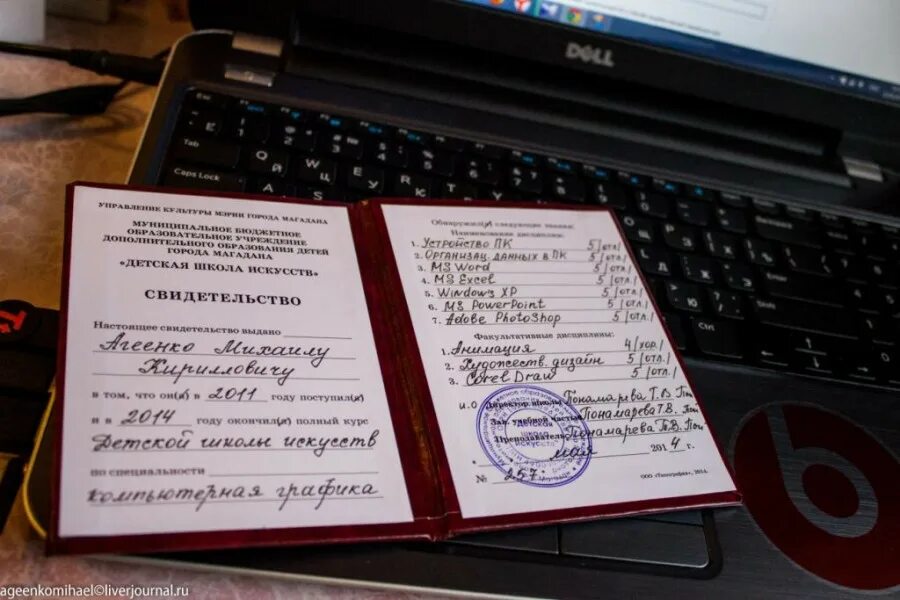 DELL
Esc
Tab
Caps Lock
Shift
Ctrl
УПРАВЛЕНИЕ КУЛЬТУРЫ МЭРИИ ГОРОДА МАГАДАНА
МУНИЦИПАЛЬНОЕ БЮДЖЕТНОЕ
ОБРАЗОВАТЕЛЬНОЕ УЧРЕЖДЕНИЕ
ДОПОЛНИТЕЛЬНОГО ОБРАЗОВАНИЯ ДЕТЕЙ
ГОРОДА МАГАДАНА
«ДЕТСКАЯ ШКОЛА ИСКУССТВ»
СВИДЕТЕЛЬСТВО
Настоящее свидетельство выдано
Агеенко Михаилу
Кирилловичу
в том, что он(а) в 2011 году поступил(а)
и в 2014 году окончил(а) полный курс
Детской школы искусств
по специальности
компьютерная графика
Обнаружил(а) следующие знания:
Наименование дисциплин:
1. Устройство ПК 5 /отл./
2. Организац. данных в ПК 5 /отл./
3. MS Word 5 /отл./
4. MS Excel 5 /отл./
5. Windows XP 5 /отл./
6. MS PowerPoint 5 /отл./
7. Adobe PhotoShop 5 /отл./
Факультативные дисциплины:
1. Анимация 4 /хор./
2. Художеств. дизайн 5 /отл./
3. Corel Draw 5 /отл./
и.о Директор школы Пономарева Т.В.
Зав. учебной частью Пономарева Т.В.
Преподаватель Пономарева Т.В.
мая 2014 г.
№ 257
ООО «Типография», 2014.
ageenkomihael©livejournal.ru